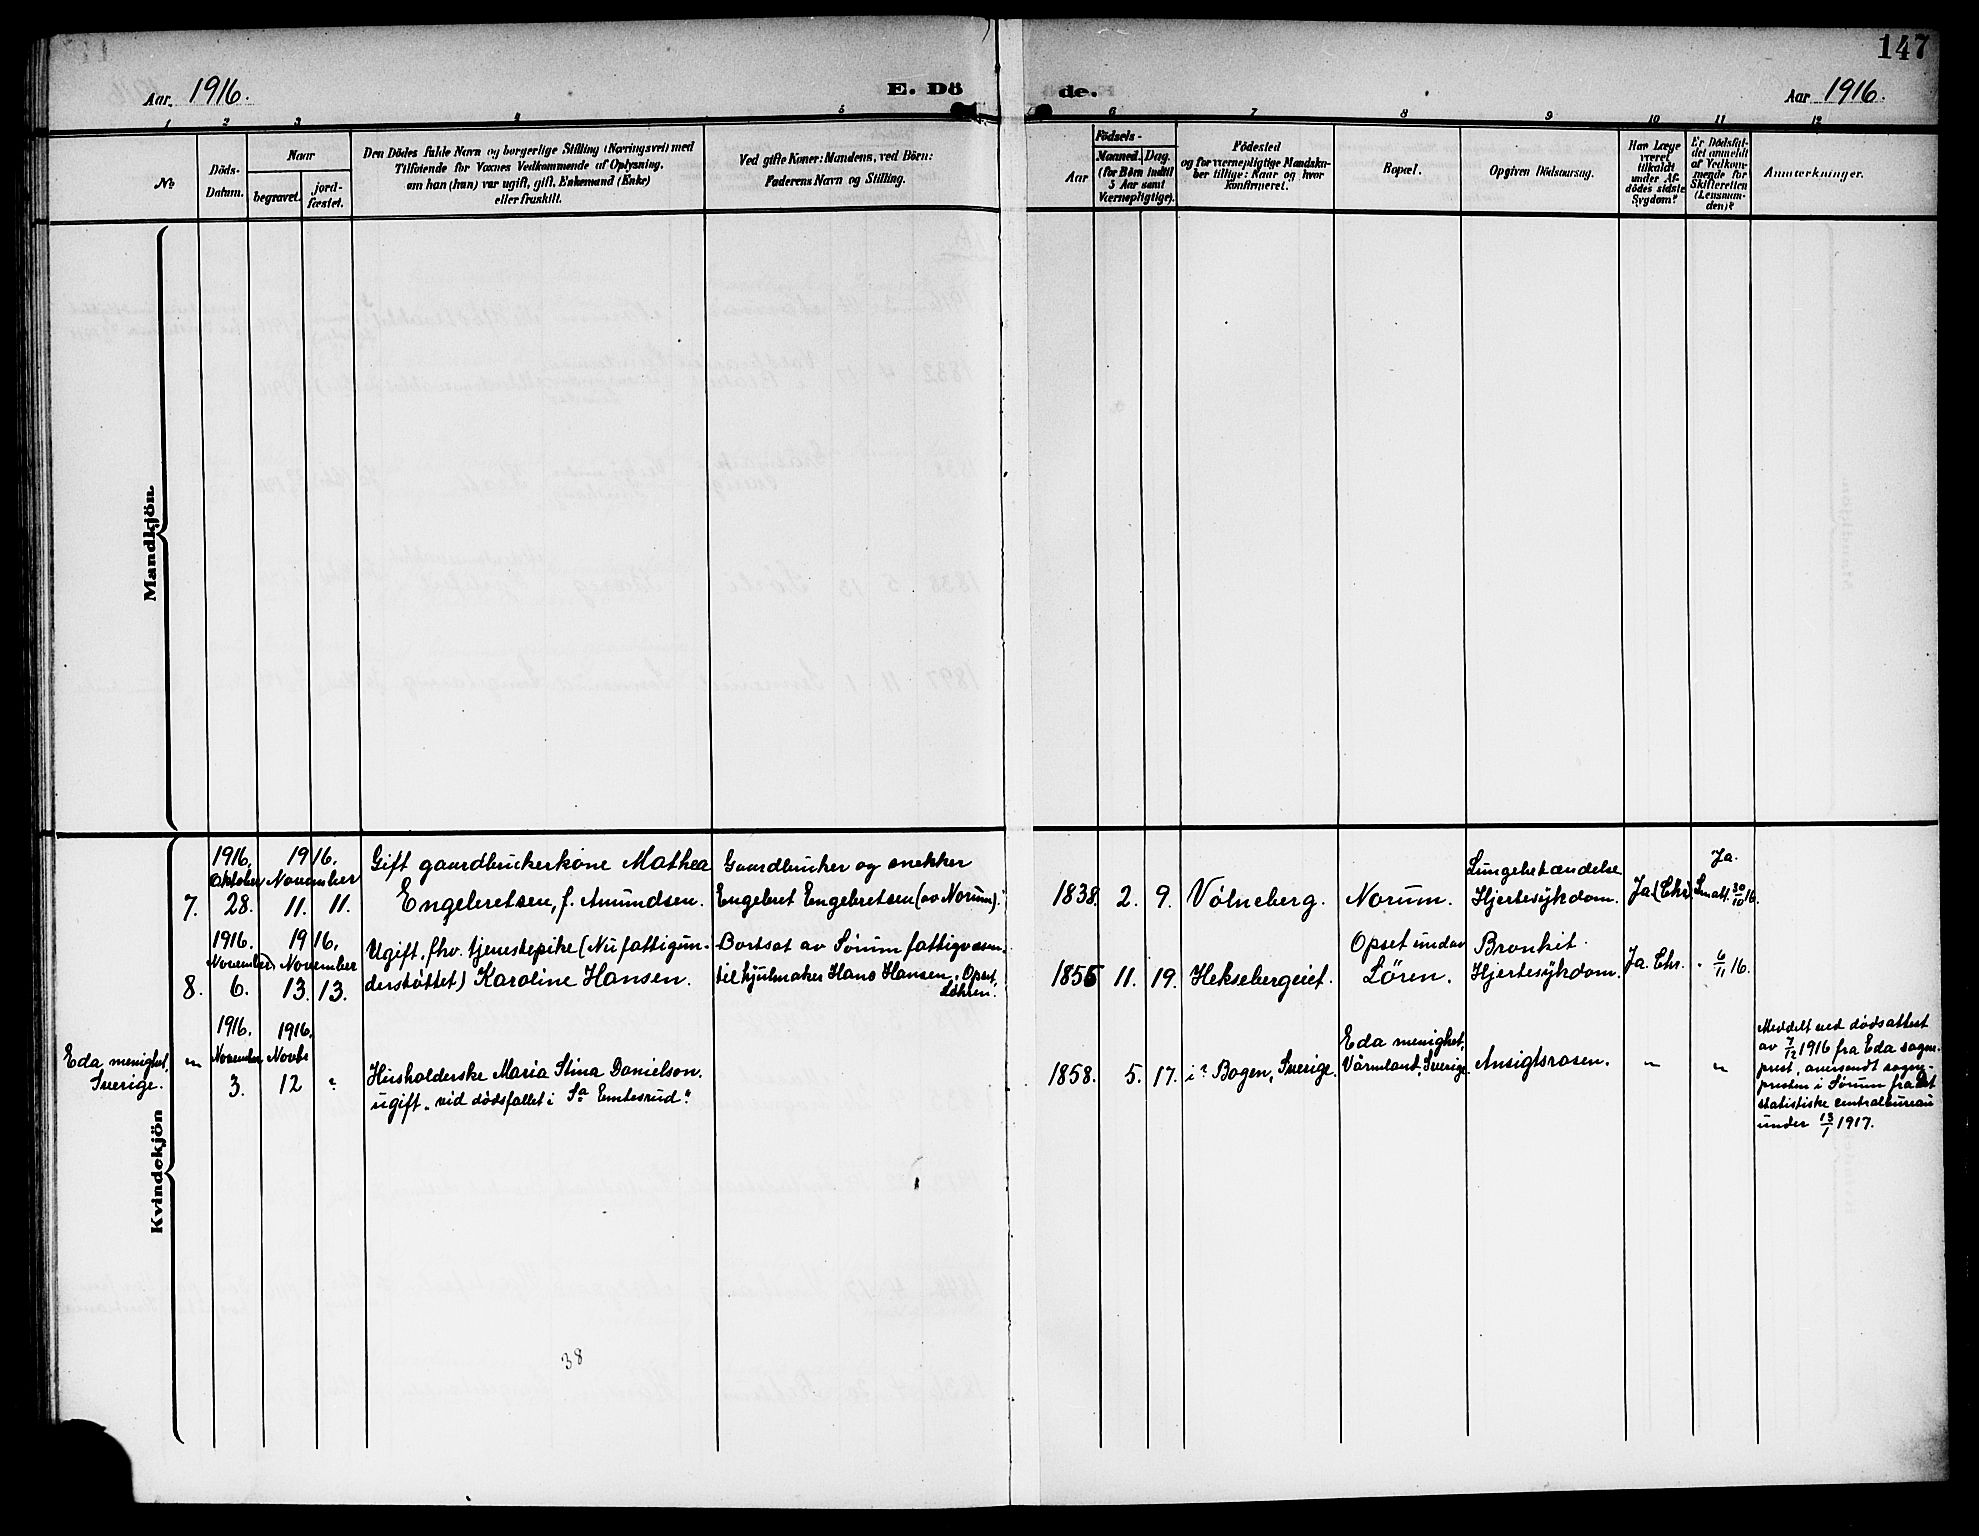 147
Aar. 1916.
E. Dö
de.
Aar 1916.
1 2 3 4 5 6 7 8 9 10 11 12
No
Döds-
Datum.
Naar
begravet.
jord-
fæstet.
Den Dödes fulde Navn og borgerlige Stilling (Næringsvei) med
Tilföiende for Voxnes Vedkommende af Oplysning,
om han (hun) var ugift, gift, Enkemand (Enke)
eller fraskilt.
Ved gifte Koner: Mandens, ved Börn:
Faderens Navn og Stilling.
Födsels-
Aar
Maaned. Dag.
(for Börn indtil
5 Aar samt
Værnepligtige).
Födested
og for værnepligtige Mandska-
ber tillige: Naar og hvor
konfirmeret.
Bopæl.
Opgiven Dödsaarsag.
Har Læge
været
tilkaldt
under Af-
dödes sidste
Sygdom?
Er Dödsfal-
det anmeldt
af Vedkom-
mende for
Skifteretten
(Lensman-
den)?
Anmærkninger.
Mandkjön.
Kvindekjön
7.
1916.
Oktober
28.
1916.
November
11. 11.
Gift gaardbrukerkone Mathea
Engebretsen, f. Amundsen.
Gaardbruker og snekker
Engebret Engebretsen (av Norum).
1838. 2. 9.
Vølneberg.
Norum.
Lungebetændelse
Hjertesykdom.
Ja (Chr)
Ja.
Smatt. 30/10 16.
8.
1916.
November
6.
1916.
November
13. 13.
Ugift, fhv. tjenestepike (Nu fattigun-
derstøttet) Karoline Hansen.
Bortsat av Sørum fattigvæsen
til hjulmaker Hans Hansen, Opset,
Løhren.
1855 11. 19.
Heksebergeiet.
Opset under
Løren.
Bronkit.
Hjertesykdom.
Ja. Chr.
" 6/11 16.
Eda menighet,
Sverige.
"
1916.
November
3.
1916.
Novbr
12
?
Husholderske Maria Stina Danielson.
ugift „ vid dødsfallet i Sa Emtesrud.“
1858. 5. 17.
i ? Bogen, Sverige.
Eda menighet,
Värmland, Sverige.
Ansigtsrosen.
"
"
Meddelt ved dødsattest
av 7/12 1916 fra Eda sogne-
prest, oversendt sogne-
presten i Sørum fra Det
statistiske centralbureau
under 13/1 1917.
38